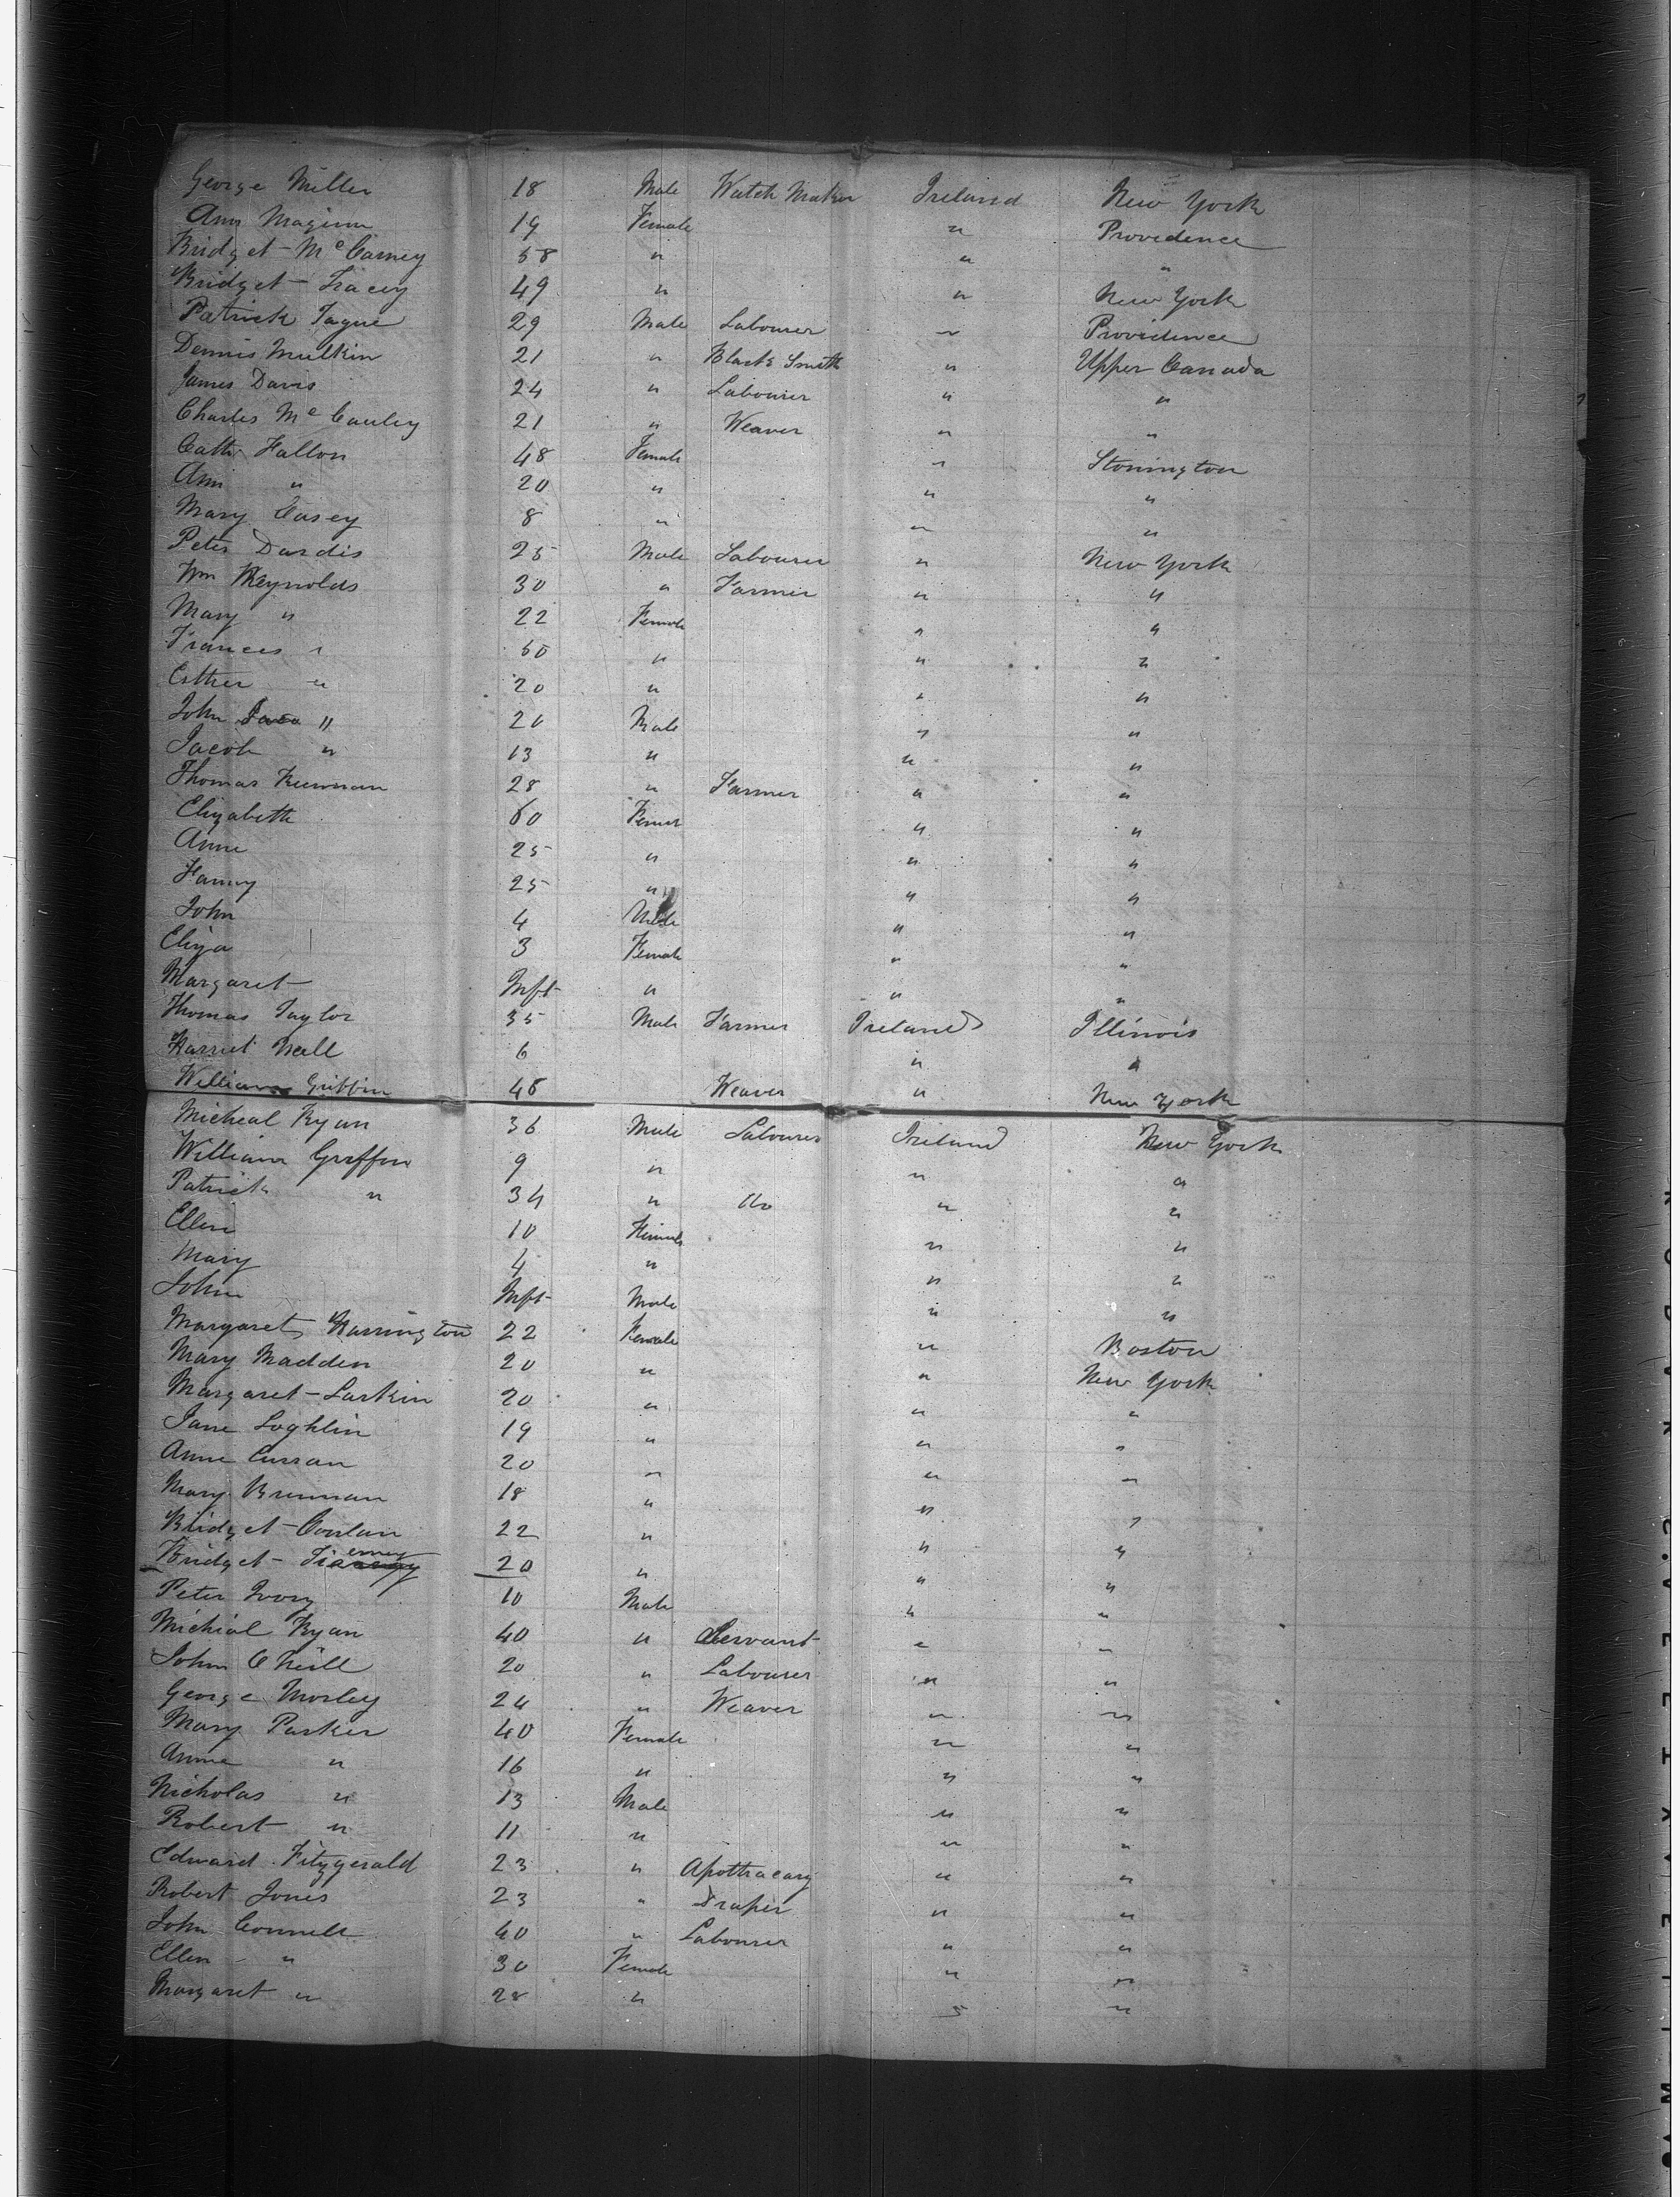 George Miller 18 Male Watch Maker Ireland New York
Ann Maginn 19 Female " " Providence
Bridget McCarney 58 " " "
Bridget Tracey 49 " " New York
Patrick Tague 29 Male Labourer " Providence
Dennis Mulkin 21 " Black Smith " Upper Canada
James Davis 24 " Labourer " "
Charles McCauley 21 " Weaver " "
Cath Fallon 48 Female " Stonington
Ann " 20 " " "
Mary Casey 8 " " "
Peter Dardis 25 Male Labourer " New York
Wm Reynolds 30 " Farmer " "
Mary " 22 Female " "
Frances " 50 " " "
Esther " 20 " " "
John " 20 Male " "
Jacob " 13 " " "
Thomas 28 " Farmer " "
Elizabeth 60 Femal " "
Anne 25 " " "
Fanny 25 " " "
John 4 Male " "
Eliza 3 Female " "
Margaret Inft " " "
Thomas Taylor 35 Male Farmer Ireland Illinois
Harriet Neill 6 " "
William Griffin 48 Weaver " New York
Micheal Ryan 36 Male Labourer Ireland New York
William Griffin 9 " " "
Patrick " 34 " do " "
Ellen 10 Female " "
Mary 4 " " "
John Inft Male " "
Margaret Harrington 22 Female " Boston
Mary Madden 20 " " New York
Margaret Larkin 20 " " "
Jane Loghlin 19 " " "
Anne Curran 20 " " "
Mary Brennan 18 " " "
Bridget Conlan 22 " " "
Bridget Tierney 20 " " "
Peter Ivory 10 Male " "
Michial Ryan 40 " Servant " "
John O Neill 20 " Labourer " "
George Morley 24 " Weaver " "
Mary Parker 40 Female " "
Anne " 16 " " "
Nicholas " 13 Male " "
Robert " 11 " " "
Edward Fitzgerald 23 " Apothracary " "
Robert Jones 23 " Draper " "
John Connell 40 " Labourer " "
Ellen " 30 Female " "
Margaret " 28 " " "